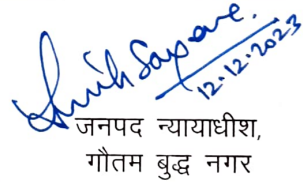 12.12.2023
जनपद न्यायाधीश,
गौतम बुद्ध नगर